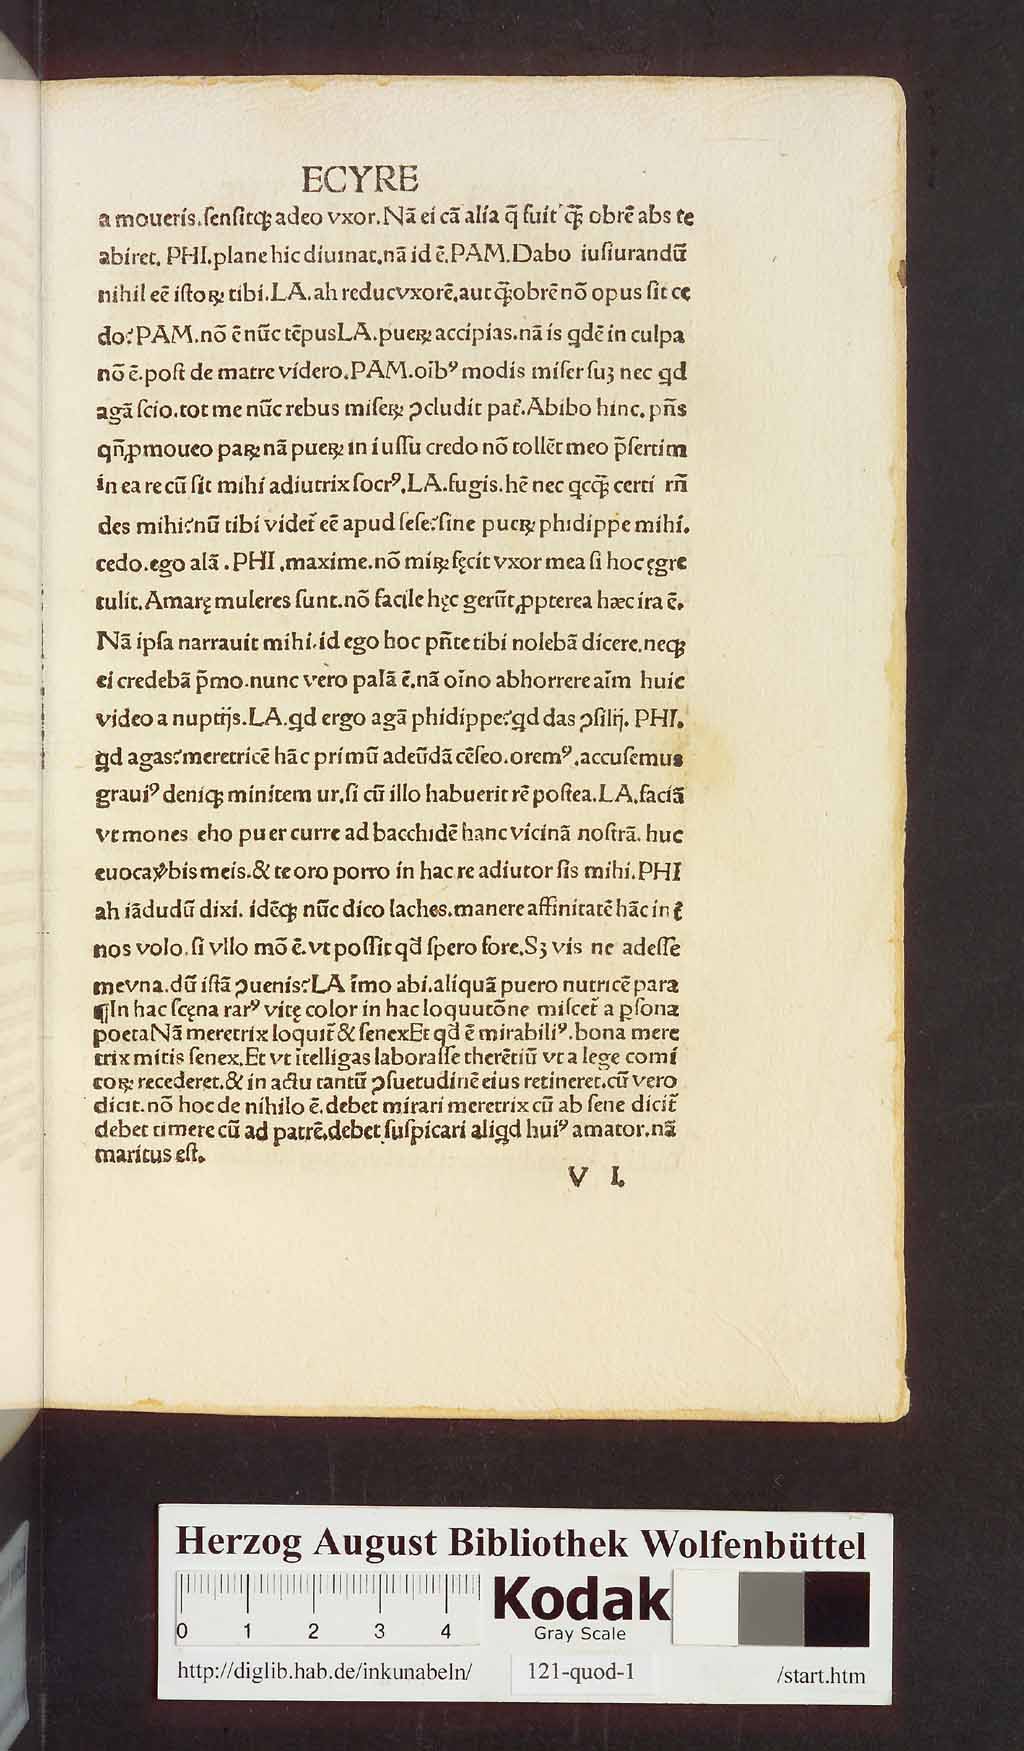 ECYRE
a moueris.ſenſitqꝫ adeo vxor.Nā ei cā alía q̄ fuit q̄ꝫ obrē abs te
abiret. PHI.plane hic diuinat.nā id ē.PAM.Dabo iuſiurandū
nihil eē iſtoꝝ tibi.LA.ah reduc vxorē.aut q̄ꝫobrē nō opus ſit ce
do?PAM.nō ē nūc tēpusLA.pueꝝ accipias.nā is qdē in culpa
nō ē.poſt de matre videro.PAM.oībꝰ modis miſer ſuꝫ nec qd
agā ſcio.tot me nūc rebus miſeꝝ ꝯcludit pat̄.Abibo hinc. pn̄s
qn̄ ꝓmoueo paꝝ nā pueꝝ in iuſſu credo nō tollēt meo p̄ſertim
in ea re cū ſit mihi adiutrix ſocrꝰ.LA.fugis.hē nec qcq̄ꝫ certi rn̄
des mihi?nū tibi videt̄ eē apud ſeſe?ſine pueꝝ phidippe mihi.
cedo.ego alā.PHI.maxime.nō miꝝ fęcit vxor mea ſi hoc ęgre
tulit.Amarę muleres ſunt.nō facile hęc gerūt ꝓpterea hæc ira ē.
Nā ipſa narrauit mihi.id ego hoc pn̄te tibi nolebā dicere.neqꝫ
ei credebā p̄mo.nunc vero palā ē.nā oīno abhorrere aīm huic
video a nuptijs.LA.qd ergo agā phidippe?qd das ꝯſilij. PHI.
qd agas?meretricē hāc primū adeūdā cēſeo.oremꝰ.accuſemus
grauiꝰ deniqꝫ minitem ur.ſi cū illo habuerit rē poſtea.LA.faciā
vt mones eho puer curre ad bacchidē hanc vicinā noſtrā. huc
euoca ỽbis meis.& te oro porro in hac re adiutor ſis mihi.PHI
ah iādudū dixi. idēqꝫ nūc dico laches.manere affinitatē hāc int̄
nos volo.ſi vllo mō ē.vt poſſit qd ſpero fore.Sꝫ vis ne adeſſe
mevna.dū iſtā ꝯuenis?LA īmo abi.aliquā puero nutricē para
¶In hac ſcęna rarꝰ vitę color in hac loquutōne miſcet̄ a ꝑſona
poetaNā meretrix loquit̄ & ſenexEt qd ē mirabiliꝰ.bona mere
trix mitis ſenex.Et vt ītelligas laboraſſe therētiū vt a lege comi
coꝝ recederet.& in actu tantū ꝯſuetudinē eius retineret.cū vero
dicit.nō hoc de nihilo ē.debet mirari meretrix cū ab ſene dicit̄
debet timere cū ad patrē.debet ſuſpicari aliqd huiꝰ amator.nā
maritus eſt.
V I.
Herzog August Bibliothek Wolfenbüttel
0 1 2 3 4
Kodak
Gray Scale
http://diglib.hab.de/inkunabeln/ 121-quod-1 /start.htm